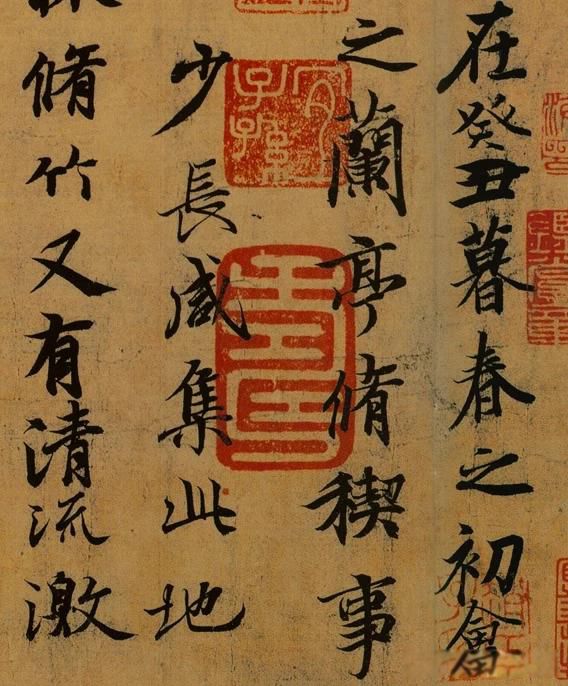 在癸丑暮春之初會
之蘭亭脩稧事
少長咸集此地
脩竹又有清流激